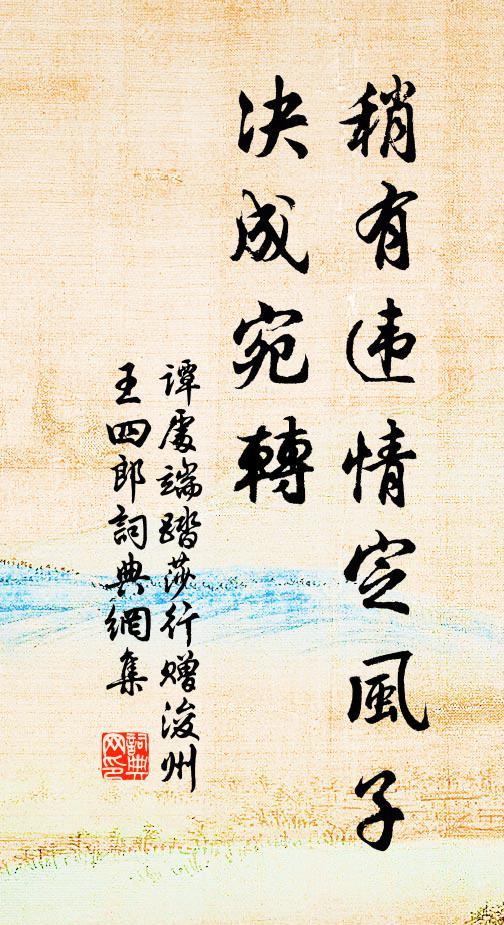 稍有违情定風子
决成宛轉
谭處端踏莎行赠浚州
王四郎詞典網集
詞典网印